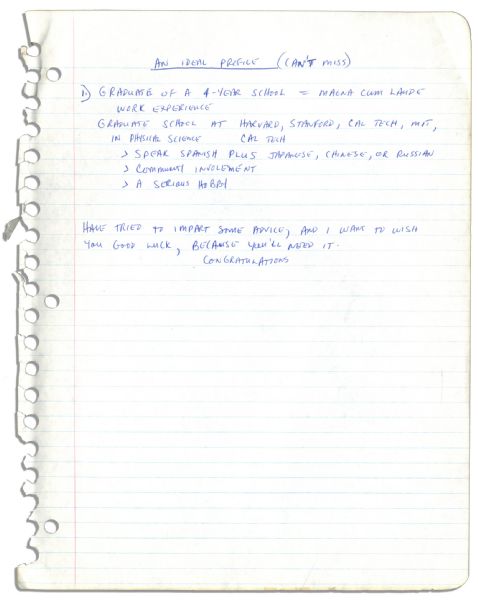 AN IDEAL PROFILE (CAN'T MISS)
1) GRADUATE OF A 4-YEAR SCHOOL = MAGNA CUM LAUDE
WORK EXPERIENCE
GRADUATE SCHOOL AT HARVARD, STANFORD, CAL TECH, MIT,
IN PHYSICAL SCIENCE CAL TECH
> SPEAK SPANISH PLUS JAPANESE, CHINESE, OR RUSSIAN
> COMMUNITY INVOLEMENT
> A SERIOUS HOBBY
HAVE TRIED TO IMPART SOME ADVICE, AND I WANT TO WISH
YOU GOOD LUCK, BECAUSE YOU'LL NEED IT.
CONGRATULATIONS